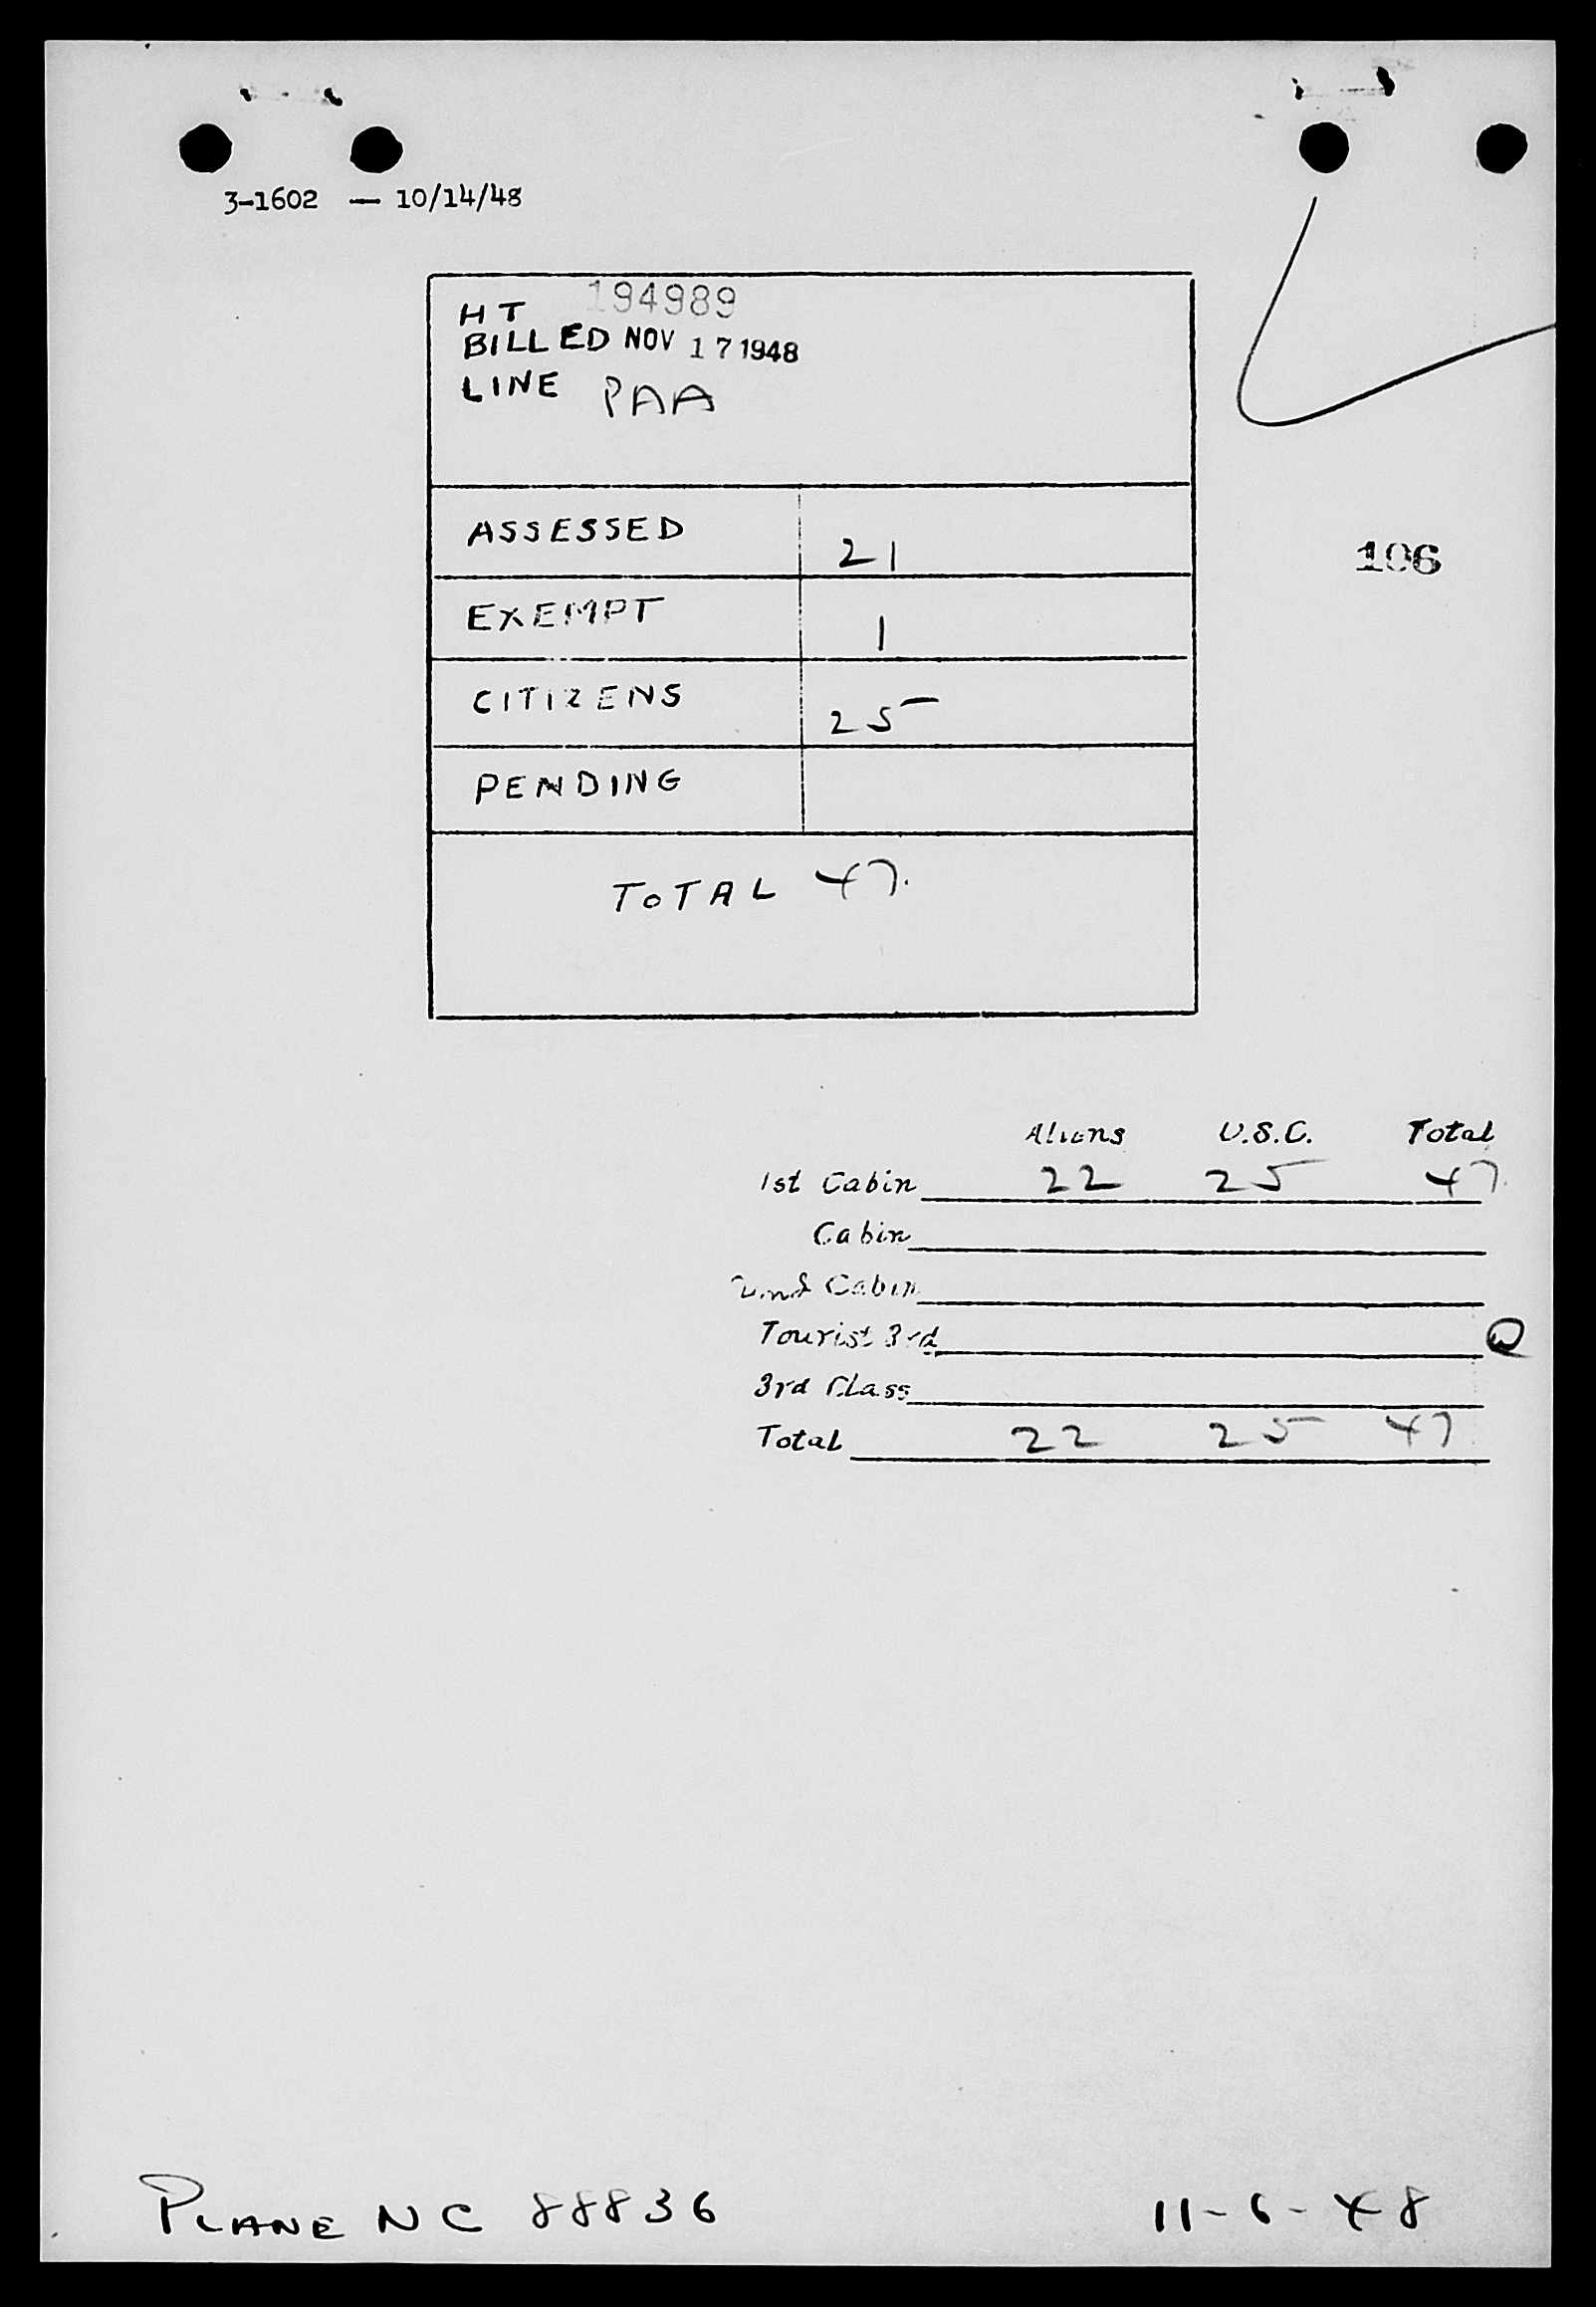 3-1602 — 10/14/48
HT 194989
BILLED NOV 17 1948
LINE PAA
ASSESSED 21
106
EXEMPT 1
CITIZENS 25
PENDING
TOTAL 47.
Aliens U.S.C. Total
1st Cabin 22 25 47.
Cabin
2nd Cabin
Tourist 3rd
3rd Class
Total 22 25 47
PLANE NC 88836 11-6-48